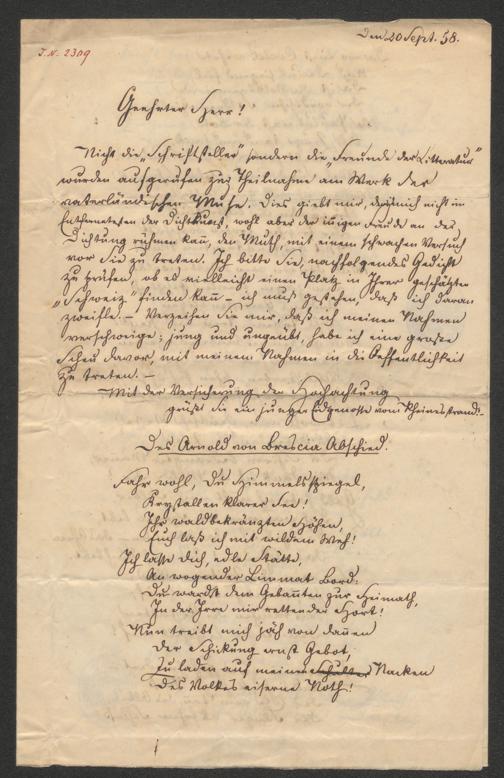 Den 20 Sept. 58.
J. N. 2309
Geehrter Herr!
Nicht die „Schriftsteller" sondern die „Freunde der Litteratur"
wurden aufgerufen zur Theilnahme am Werk der
vaterländischen Muse. Dies giebt mir, der mich nicht im
der Dichtkunst, wohl aber der innigen Freude an der
Dichtung rühmen kann, den Muth, mit einem schwachen Versuch
vor Sie zu treten. Ich bitte Sie, nachfolgendes Gedicht
zu prüfen, ob es vielleicht einen Platz in Ihrer geschätzten
„Schweiz" finden kann – ich muß gestehen, daß ich daran
zweifle. – Verzeihen Sie mir, daß ich meinen Nahmen
verschweige; jung und ungeübt, habe ich eine große
Scheu davor, mit meinem Nahmen in die Oeffentlichkeit
zu treten. –
Mit der Versicherung der Hochachtung
grüßt Sie ein junger Eidgenosse vom Rheinesstrand. –
Des Arnold von Brescia Abschied.
Fahr wohl, Du Himmelsspiegel,
Krystallenklarer See!
Ihr waldbekränzten Höhen,
Euch laß ich mit wildem Weh!
Ich lasse Dich, edle Stätte,
An wogender Limmat Bord:
Du wardst dem Gebannten zur Heimath,
In der Irre mir rettender Hort!
Nun treibt mich jäh von dannen
Der Schikung ernst Gebot
Zu laden auf meinen Schulter Nacken
Des Volkes eiserne Noth!